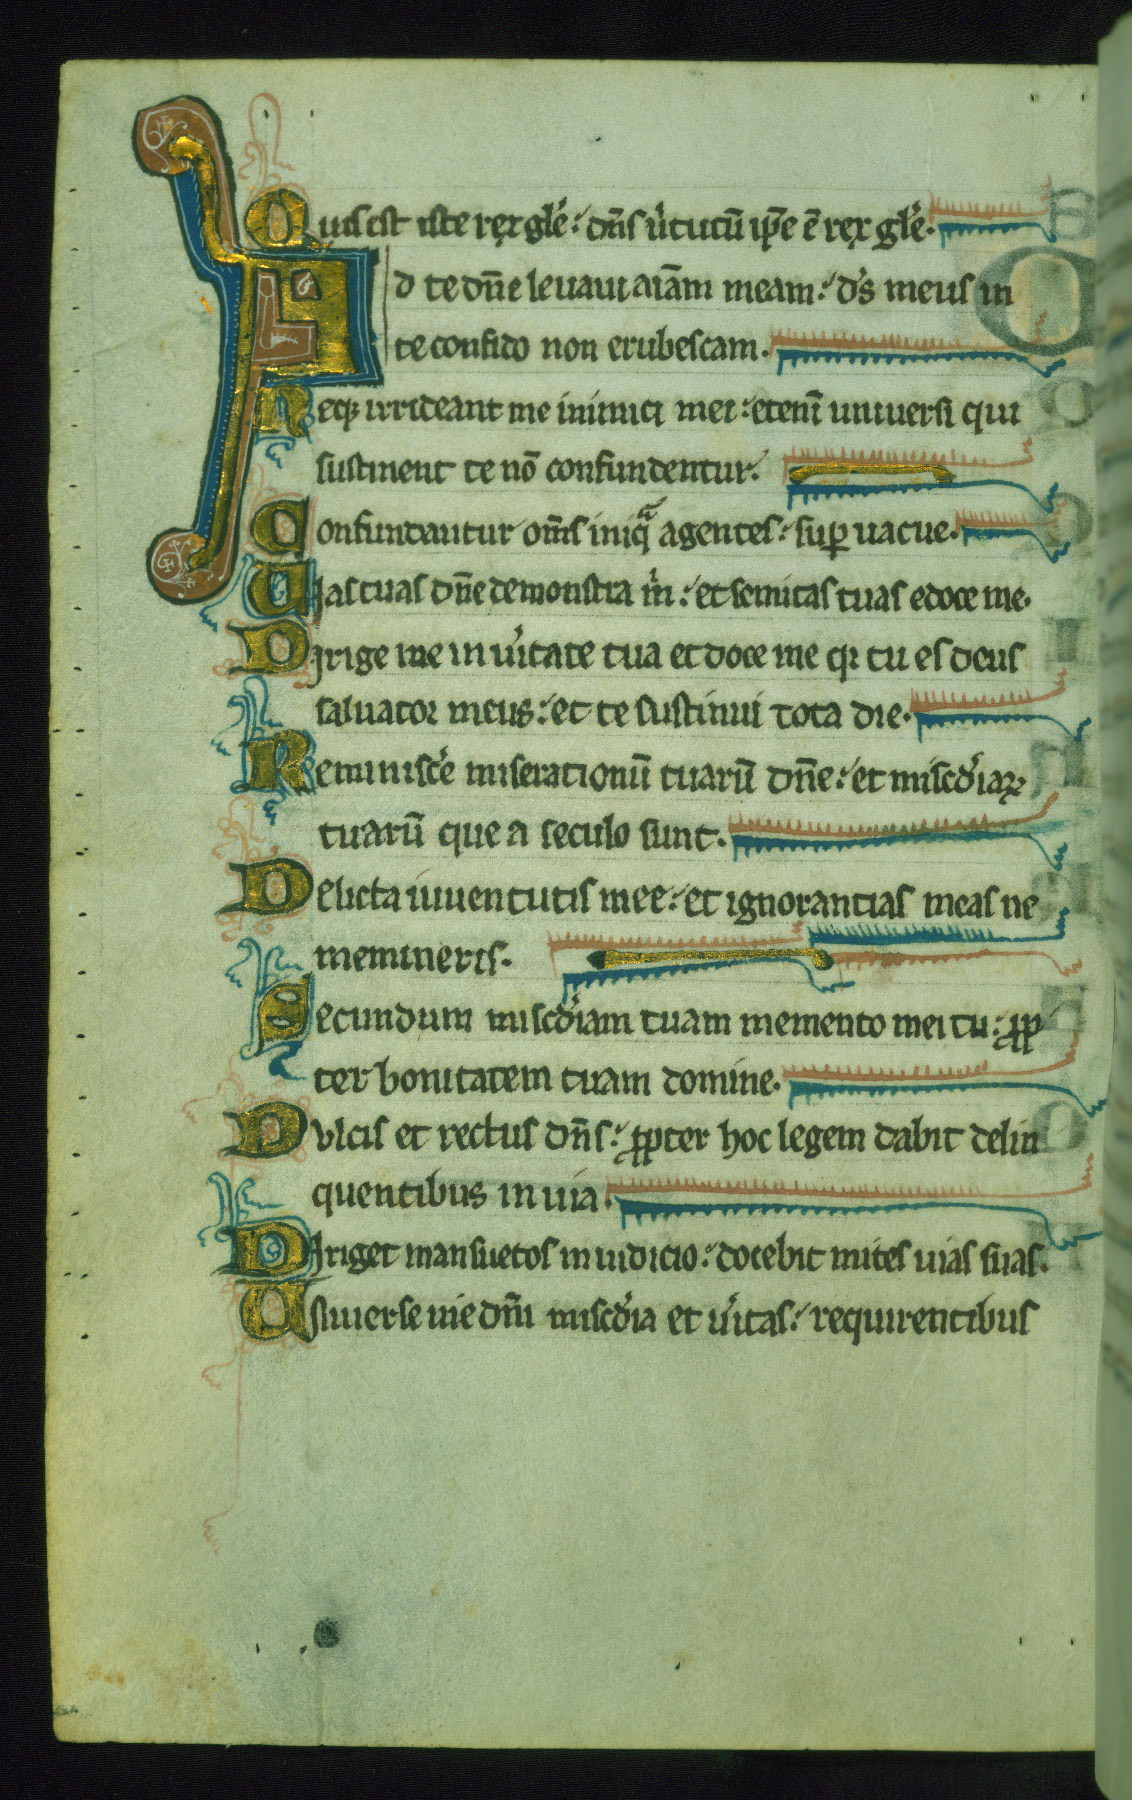 Quis est iste rex gl̄e: dn̄s v̓tutū ip̄e ē rex gl̄e.
Ad te dn̄e levavi aīam meam: d̓s meus in
te confido non erubescam.
Neq₃ irrideant me inimici mei: etenī universi qui
sustinent te nō confundentur.
Confundantur om̄s iniq̄ agentes: suꝑ vacue.
Vias tuas dn̄e demonstra m̓: et semitas tuas edoce me.
Dirige me in v̓itate tua et doce me qr tu es deus
salvator meus: et te sustinui tota die.
Reminisc̓e miserationū tuarū dn̄e: et misc̓diaꝝ
tuarū que a seculo sunt.
Delicta iuventutis mee: et ignorantias meas ne
memineris.
Secundum misc̓diam tuam memento mei tu: ꝓp
ter bonitatem tuam domine.
Dulcis et rectus dn̄s: ꝓpter hoc legem dabit delin
quentibus in via.
Diriget mansuetos in iudicio: docebit mites vias suas.
Universe vie dn̄i misc̓dia et v̓itas: requirentibus